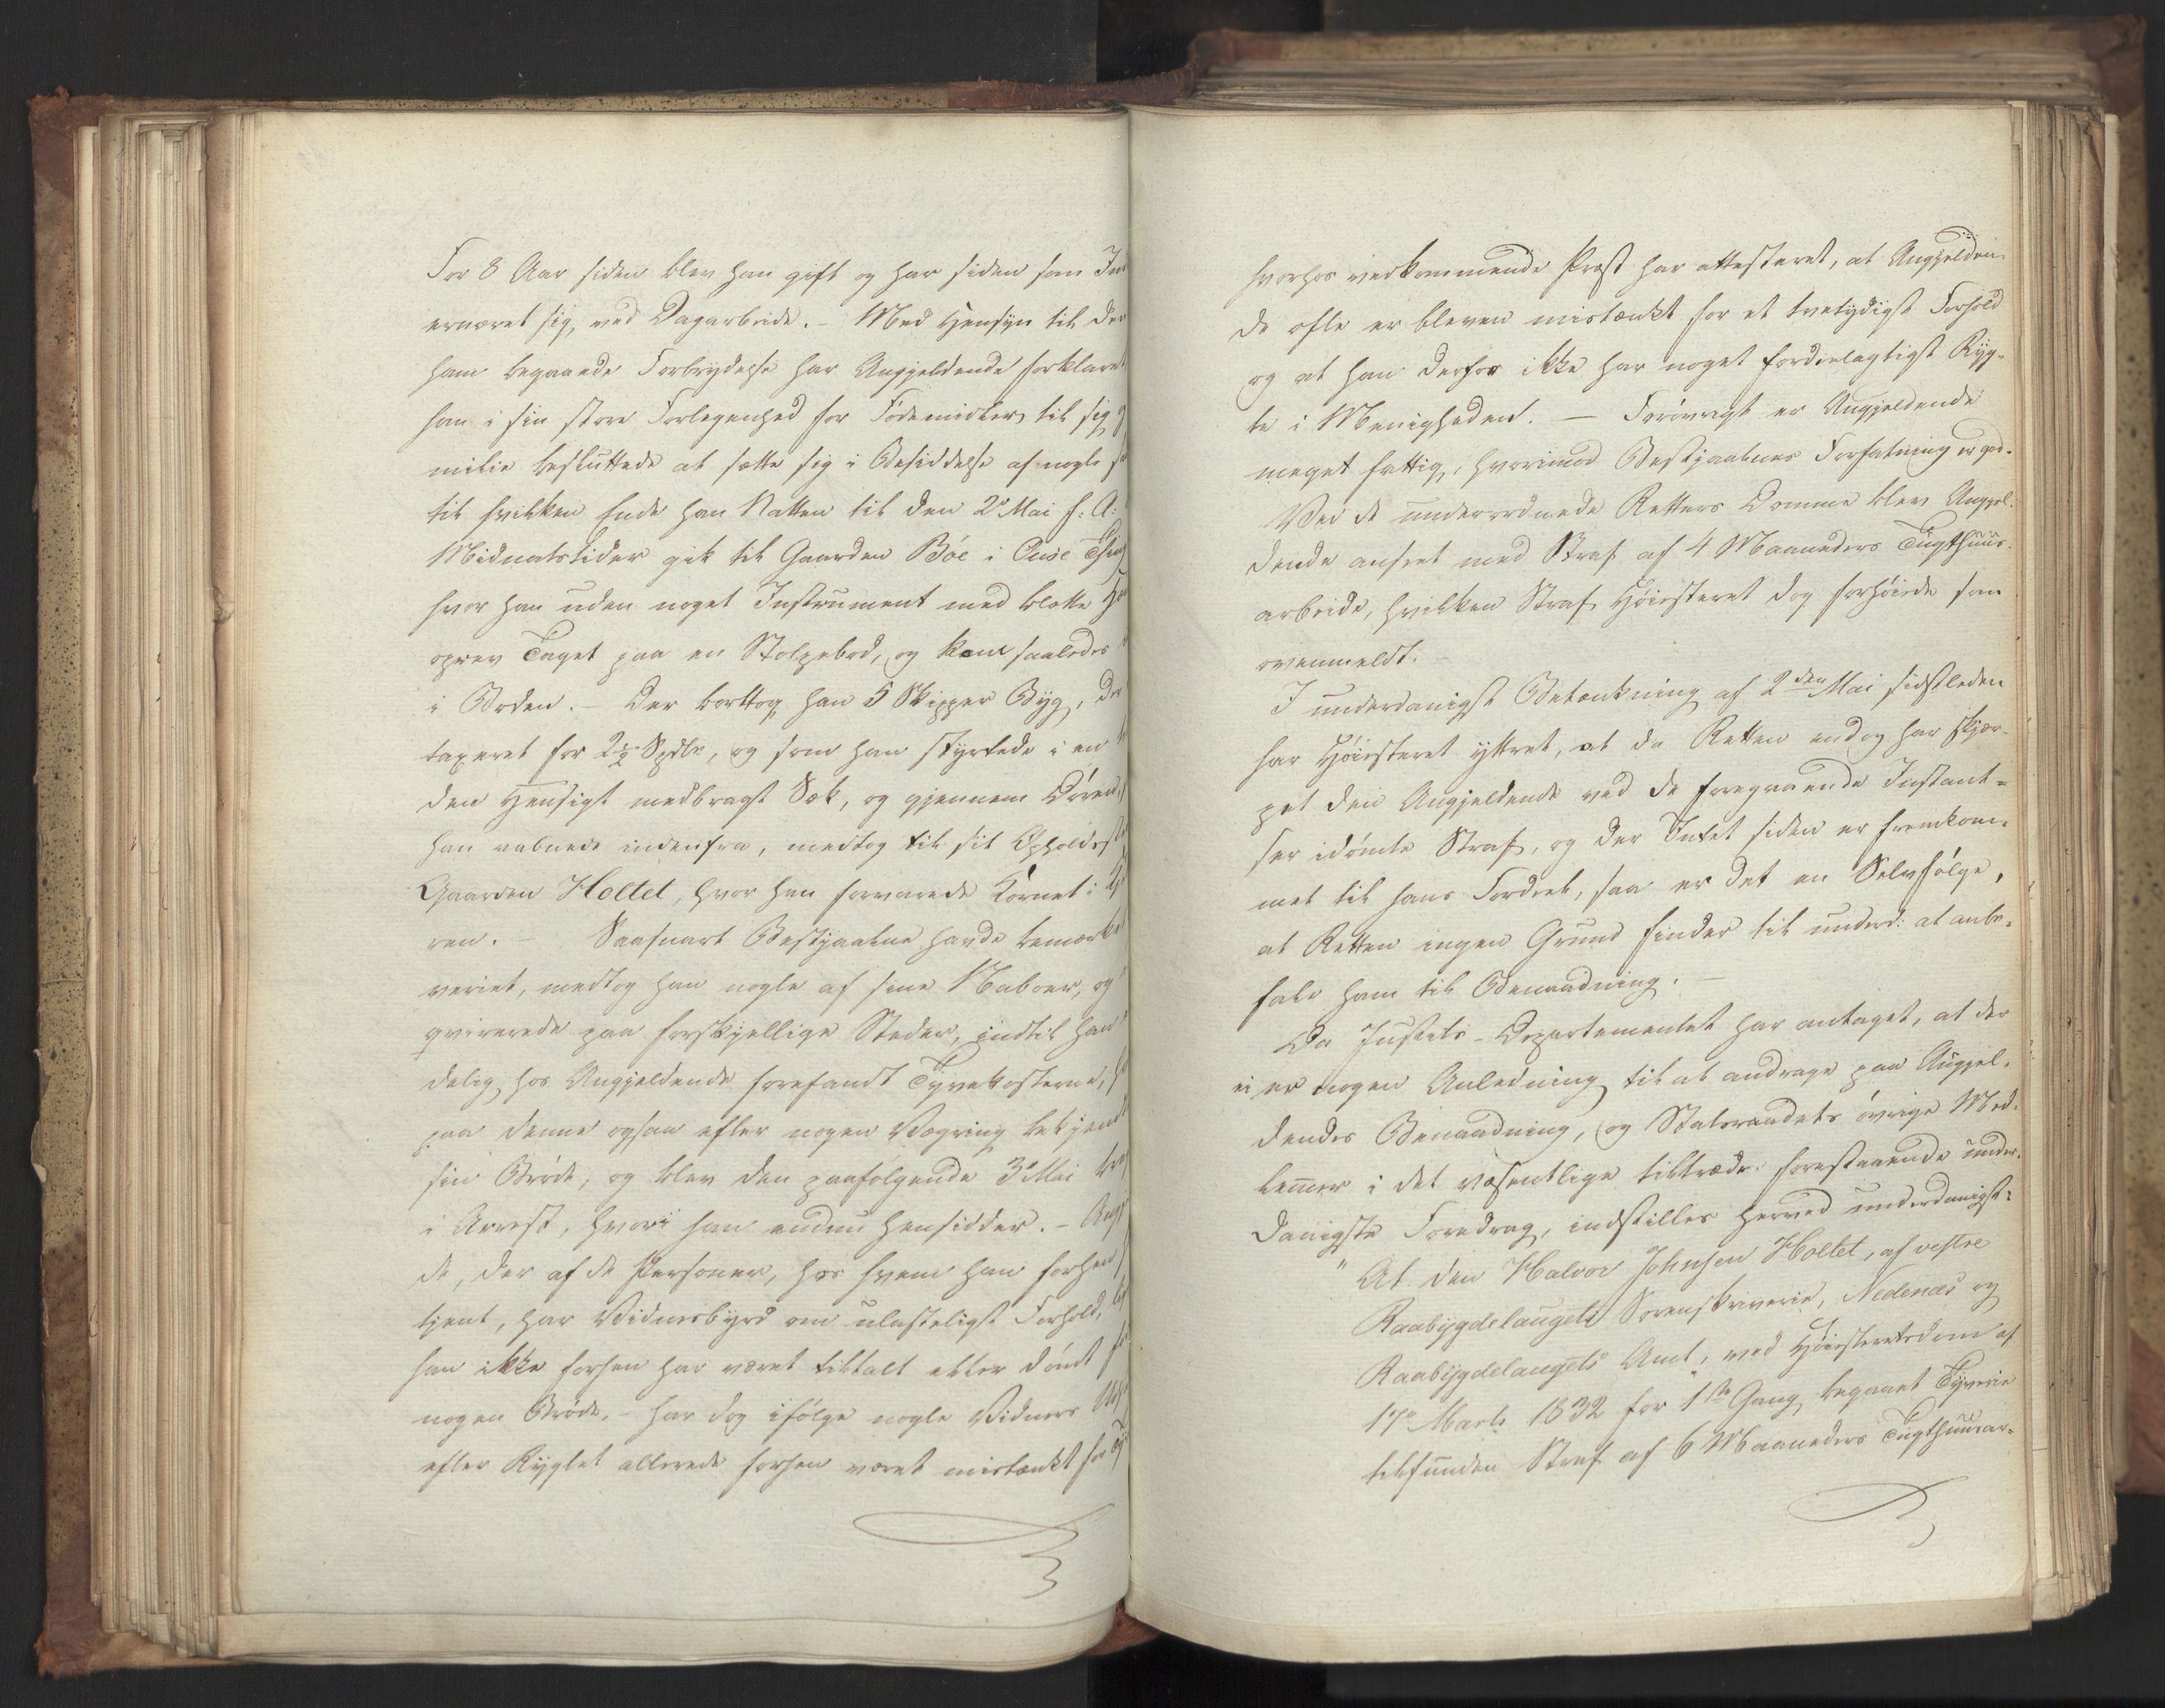 For 8 Aar siden blev han gift og har siden som In
ernæret sig ved Dagarbeide. - Med Hensyn til den
ham begaaede Forbrydelse har Angjeldende forklaret
han i sin store Forlegenhed for Fødemidler til sig
milie besluttede at sætte sig i Besiddelse af nogle
til hvilken Ende han Natten til den 2de Mai f: A:
Midnatstider gik til Gaarden Bóe i Ouse Thing
hvor han uden noget Instrument med blotte
oprev Taget paa en Stolpebod, og kom saaledes
i Boden. - Der borttog han 5 Skipper Byg, der
taxeret for 2½ Spdlr, og som han styrtede i en
den Hensigt medbragt Sæk, og gjennem Døren
han aabnede indenfra, medtog til sit Opholdsst
Gaarden Holtet, hvor han forvarede Kornet i
ren. - Saasnart Bestjaalne havde bemærket
veriet, medtog han nogle af sine Naboer, og
qvirerede paa forskjellige Steder, indtil han
delig hos Angjeldende forefandt Tyvekosterne,
paa denne ogsaa efter nogen Vægring bekjend
sin Brøde, og blev den paafølgende 3de Mai
i Arrest, hvori han endnu hensidder. - Angj
de, der af de Personer, hos hvem han forhen
tjent, har Vidnesbyrd om ulasteligt Forhold,
han ikke forhen har været tiltalt eller dømt
nogen Brøde, - har dog ifølge nogle Vidners
efter Rygtet allerede forhen været mistænkt for
hvorhos vedkommende Præst har attesteret, at Angjelden-
de ofte er bleven mistænkt for et tvetydigt Forhold
og at han derfor ikke har noget fordeelagtigt Ryg-
te i Menigheden. - Forøvrigt er Angjeldende
meget fattig, hvorimod Bestjaalnes Forfatning er god.
Ved de underordnede Retters Domme blev Angjel-
dende anseet med Straf af 4 Maaneders Tugthuus-
arbeide, hvilken Straf Høiesteret dog forhøiede som
ovenmeldt. -
I underdanigst Betænkning af 2den Mai sidstleden
har Høiesteret yttret, at da Retten endog har skjær-
pet den Angjeldende ved de foregaaende Instant-
ser idømte Straf, og der Intet siden er fremkom-
met til hans Fordeel, saa er det en Selvfølge,
at Retten ingen Grund finder til underd: at anbe-
fale ham til Benaadning. -
Da Justits-Departementet har antaget, at der
ei er nogen Anledning til at andrage paa Angjel-
dendes Benaadning, og Statsraadets øvrige Med-
lemmer i det væsentlige tiltræde forestaaende under-
danigste Foredrag, indstilles herved underdanigst:
"At den Halvor Johnsen Holtet, af vestre
Raabygdelaugets Sorenskriverie, Nedenæs og
Raabygdelaugets Amt, ved Høiesteretsdom af
17de Marts 1832 for 1ste Gang begaaet Tyverie
tilfunden Straf af 6 Maaneders Tugthuusar-